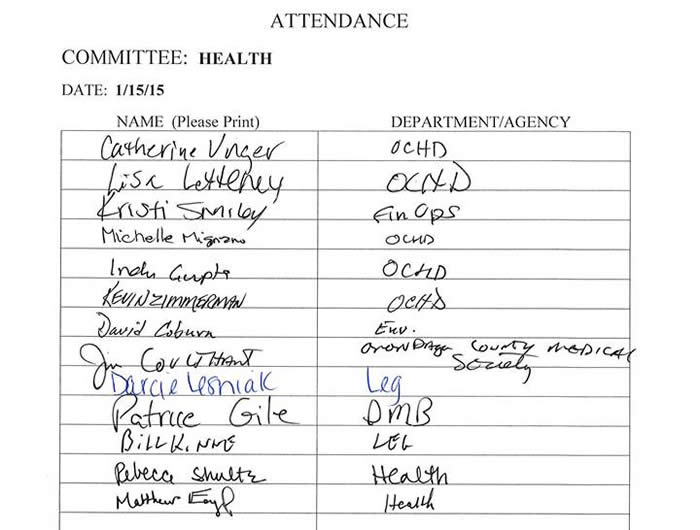 ATTENDANCE
COMMITTEE: HEALTH
DATE: 1/15/15
NAME (Please Print) DEPARTMENT/AGENCY
Catherine Unger OCHD
Lisa Letteney OCHD
Kristi Smiley Fin Ops
Michelle Mignano OCHD
Indu Gupta OCHD
KEVIN ZIMMERMAN OCHD
David Coburn Env.
Jim COULTHART ONONDAGA COUNTY MEDICAL
Society
Darcie Lesniak Leg
Patrice Gile DMB
BILL KINNE LEG
Rebecca Shultz Health
Matthew Health